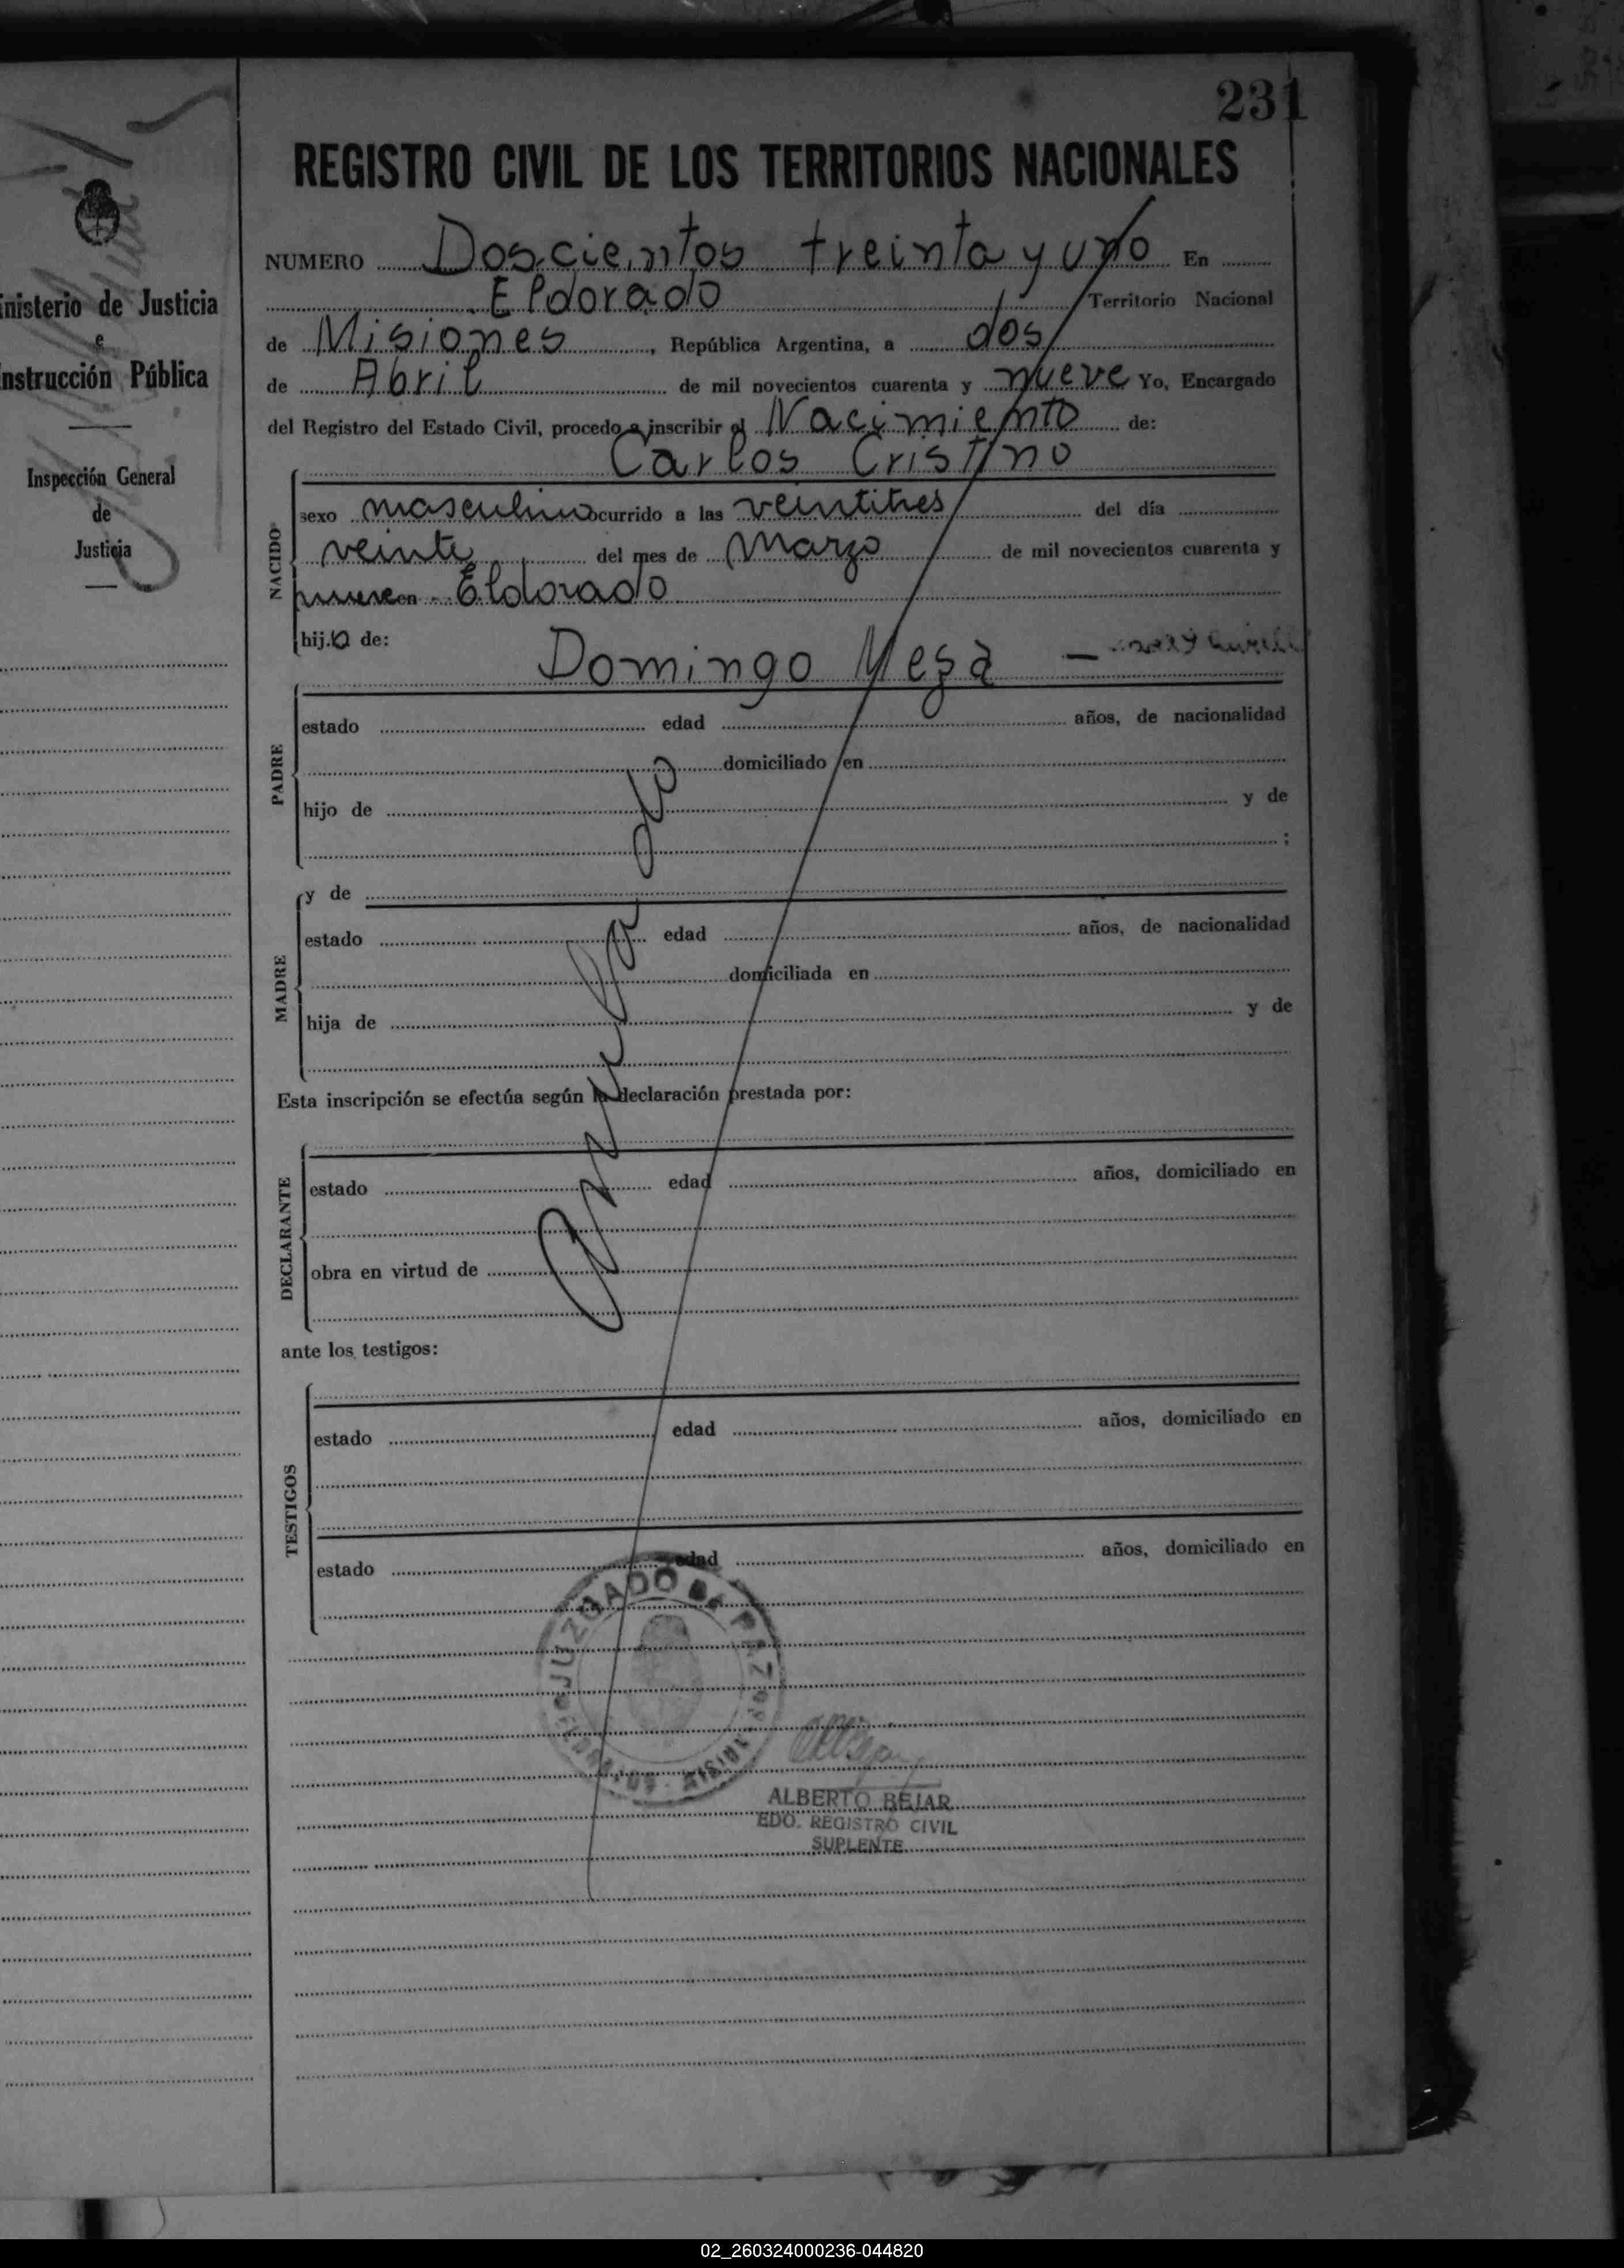 231
REGISTRO CIVIL DE LOS TERRITORIOS NACIONALES
inisterio de Justicia
e
nstrucción Pública
Inspección General
de
Justicia
NUMERO Doscientos treinta y uno En
Eldorado Territorio Nacional
de Misiones, República Argentina, a dos
de Abril de mil novecientos cuarenta y nueve Yo, Encargado
del Registro del Estado Civil, procedo a inscribir el Nacimiento de:
Carlos Cristino
NACIDO
sexo masculino ocurrido a las veintitres del día
veinte del mes de Marzo de mil novecientos cuarenta y
nueve en Eldorado
hijo de:
Domingo Meza
PADRE
estado edad años, de nacionalidad
domiciliado en
hijo de y de
;
MADRE
y de
estado edad años, de nacionalidad
domiciliada en
hija de y de
Anulado
Esta inscripción se efectúa según la declaración prestada por:
DECLARANTE
estado edad años, domiciliado en
obra en virtud de
ante los testigos:
TESTIGOS
estado edad años, domiciliado en
estado edad años, domiciliado en
JUZGADO DE PAZ
ALBERTO BEJAR
EDO. REGISTRO CIVIL
SUPLENTE
02_260324000236-044820